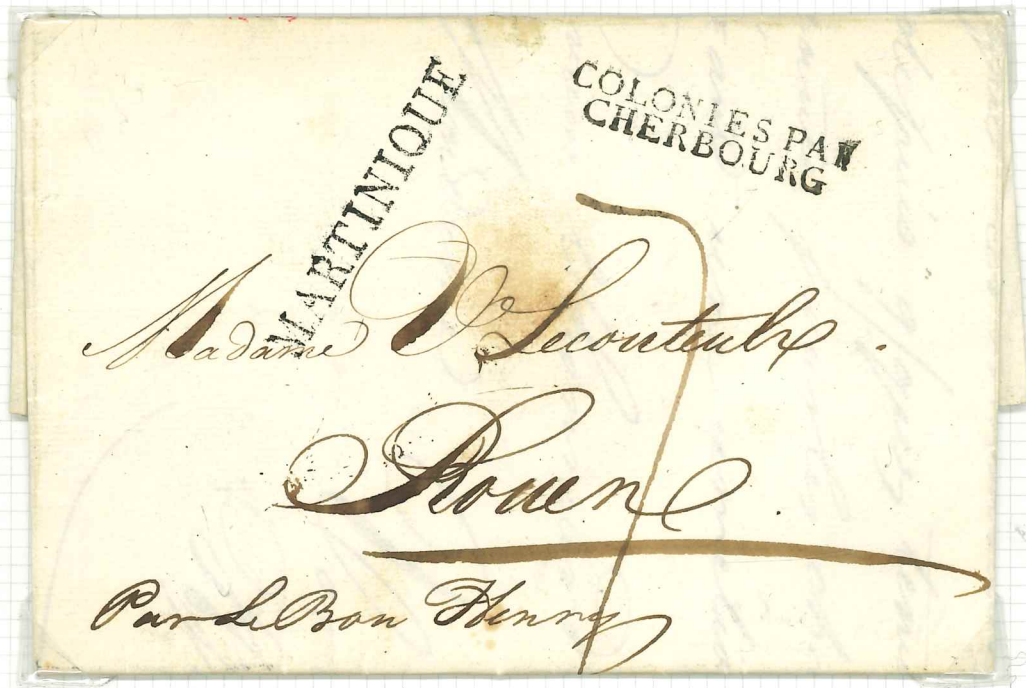 MARTINIQUE
COLONIES PAR
CHERBOURG
7
Madame Ve Lecouteulx
Rouen
Par Le Bon Henry